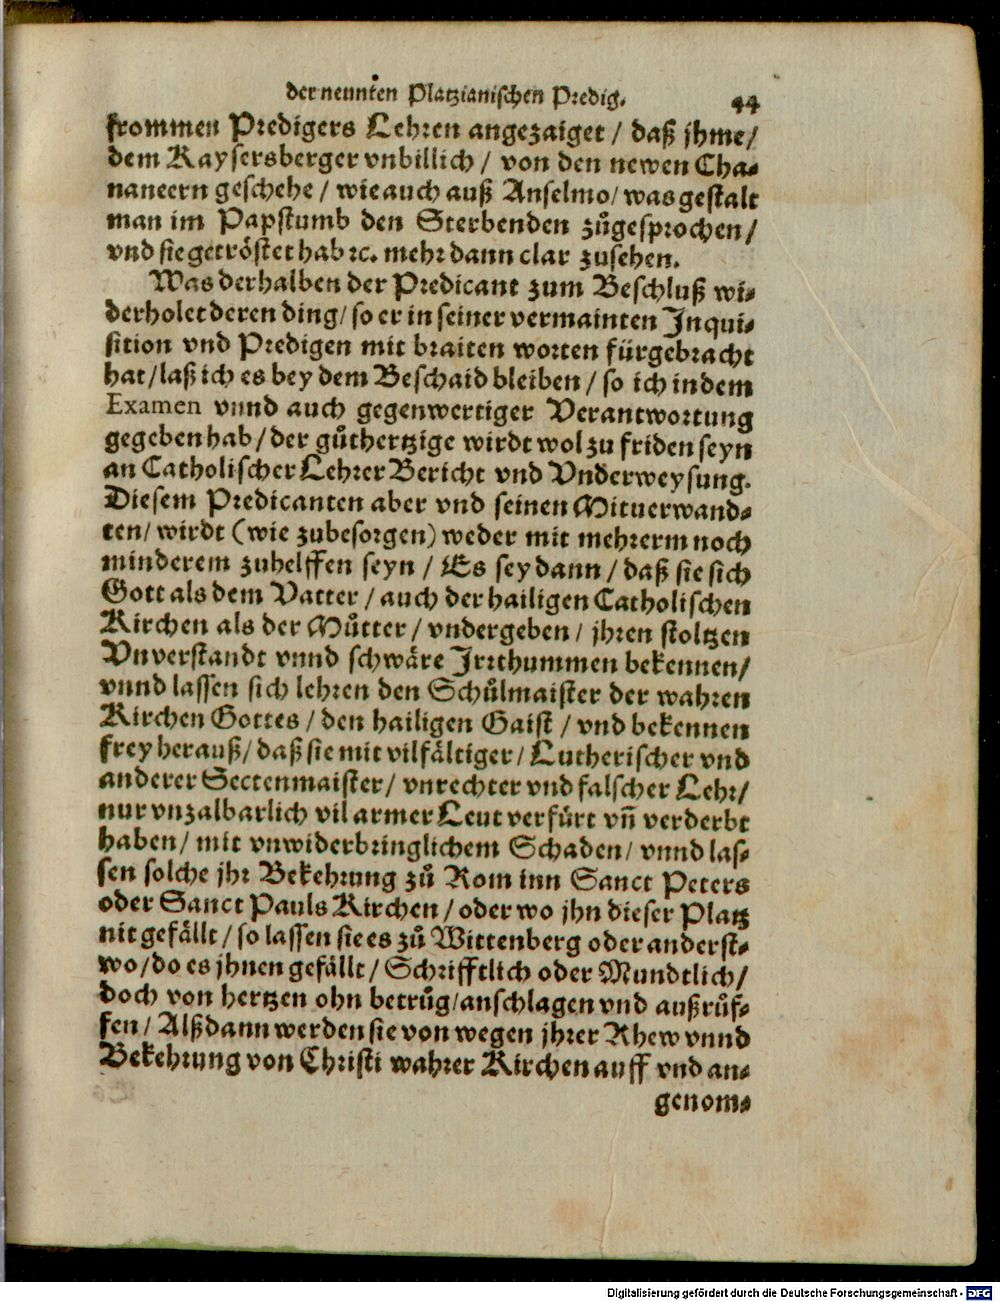 der neunten Platzianischen Predig. 44
frommen Predigers Lehren angezaiget / daß jhme /
dem Kaysersberger vnbillich / von den newen Cha⸗
naneern geschehe / wie auch auß Anselmo / was gestalt
man im Papstumb den Sterbenden zůgesprochen /
vnd sie getröstet hab ꝛc. mehr dann clar zusehen.
Was derhalben der Predicant zum Beschluß wi⸗
derholet deren ding / so er in seiner vermainten Inqui⸗
sition vnd Predigen mit braiten worten fürgebracht
hat / laß ich es bey dem Beschaid bleiben / so ich in dem
Examen vnnd auch gegenwertiger Verantwortung
gegeben hab / der gůthertzige wirdt wol zu friden seyn
an Catholischer Lehrer Bericht vnd Vnderweysung.
Diesem Predicanten aber vnd seinen Mituerwand⸗
ten / wirdt (wie zubesorgen) weder mit mehrerm noch
minderem zuhelffen seyn / Es sey dann / daß sie sich
Gott als dem Vatter / auch der hailigen Catholischen
Kirchen als der Můtter / vndergeben / jhren stoltzen
Vnverstandt vnnd schwäre Irrthummen bekennen /
vnnd lassen sich lehren den Schůlmaister der wahren
Kirchen Gottes / den hailigen Gaist / vnd bekennen
frey herauß / daß sie mit vilfältiger / Lutherischer vnd
anderer Sectenmaister / vnrechter vnd falscher Lehr /
nur vnzalbarlich vil armer Leut verfürt vñ verderbt
haben / mit vnwiderbringlichem Schaden / vnnd las⸗
sen solche jhr Bekehrung zů Rom inn Sanct Peters
oder Sanct Pauls Kirchen / oder wo jhn dieser Platz
nit gefällt / so lassen sie es zů Wittenberg oder anderst⸗
wo / do es jhnen gefällt / Schrifftlich oder Mundtlich /
doch von hertzen ohn betrůg / anschlagen vnd außrůf⸗
fen / Alßdann werden sie von wegen jhrer Rhew vnnd
Bekehrung von Christi wahrer Kirchen auff vnd an⸗
genom⸗
Digitalisierung gefördert durch die Deutsche Forschungsgemeinschaft - DFG